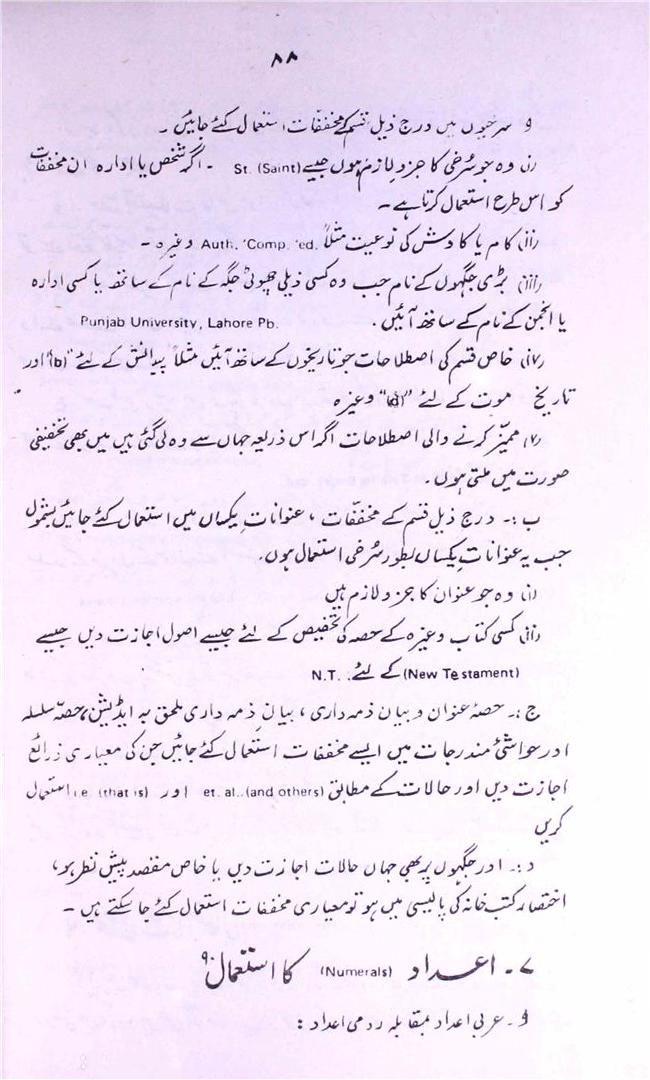 ۸۸
و سرخیوں میں درج ذیل قسم کے مخففات استعمال کئے جائیں ۔
(i) وہ جو سُرخی کا جزو لازم ہوں جیسے St. (Saint) ۔ اگر شخص یا ادارہ ان مخففات
کو اس طرح استعمال کرتا ہے ۔
(ii) کام یا کاوش کی نوعیت مثلاً Auth. 'Comp. 'ed. وغیرہ ۔
(iii) بڑی جگہوں کے نام جب وہ کسی ذیلی چھوٹی جگہ کے نام کے ساتھ یا کسی ادارہ
یا انجمن کے نام کے ساتھ آئیں ۔ Punjab University, Lahore Pb.
(iv) خاص قسم کی اصطلاحات جو تاریخوں کے ساتھ آئیں مثلاً پیدائش کے لئے "(b)" اور
تاریخ موت کے لئے "(d)" وغیرہ
(v) ممیّز کرنے والی اصطلاحات اگر اس ذریعہ جہاں سے وہ لی گئی ہیں میں بھی تخفیفی
صورت میں ملتی ہوں ۔
ب :۔ درج ذیل قسم کے مخفّفات ، عنوانات یکساں میں استعمال کئے جائیں بشمول
جب یہ عنوانات یکساں بطور سُرخی استعمال ہوں ۔
(i) وہ جو عنوان کا جزو لازم ہیں
(ii) کسی کتاب وغیرہ کے حصہ کی تخصیص کے لئے جیسے اصول اجازت دیں جیسے
(New Testament) کے لئے N.T.
ج :۔ حصۂ عنوان و بیان ذمہ داری ، بیان ذمہ داری ملحق بہ ایڈیشن، حصّہ سلسلہ
اور حواشئ مندرجات میں ایسے مخففات استعمال کئے جائیں جن کی معیاری ذرائع
اجازت دیں اور حالات کے مطابق et. al.. (and others) اور i.e. (that is) استعمال
کریں
د :۔ اور جگہوں پر بھی جہاں حالات اجازت دیں یا خاص مقصد پیش نظر ہو،
اختصار کتب خانہ کی پالیسی میں ہو تو معیاری مخففات استعمال کئے جا سکتے ہیں ۔
۷ ۔ اعداد (Numerals) کا استعمال :۹
و ۔ عربی اعداد بمقابلہ رومی اعداد :